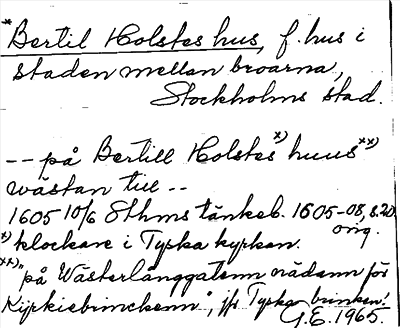 *Bertil Holstes hus, f. hus i
staden mellan broarna,
Stockholms stad.
-- på Bertill Holstes x) huus xx)
wästan till --
1605 10/6 Sthms tänkeb. 1605-08, s.20
orig.
x) klockare i Tyska kyrkan.
xx) "på Wästerlånggatenn nädann för
Kijrkiebrinckenn", jfr Tyska brinken!
G.E. 1965.